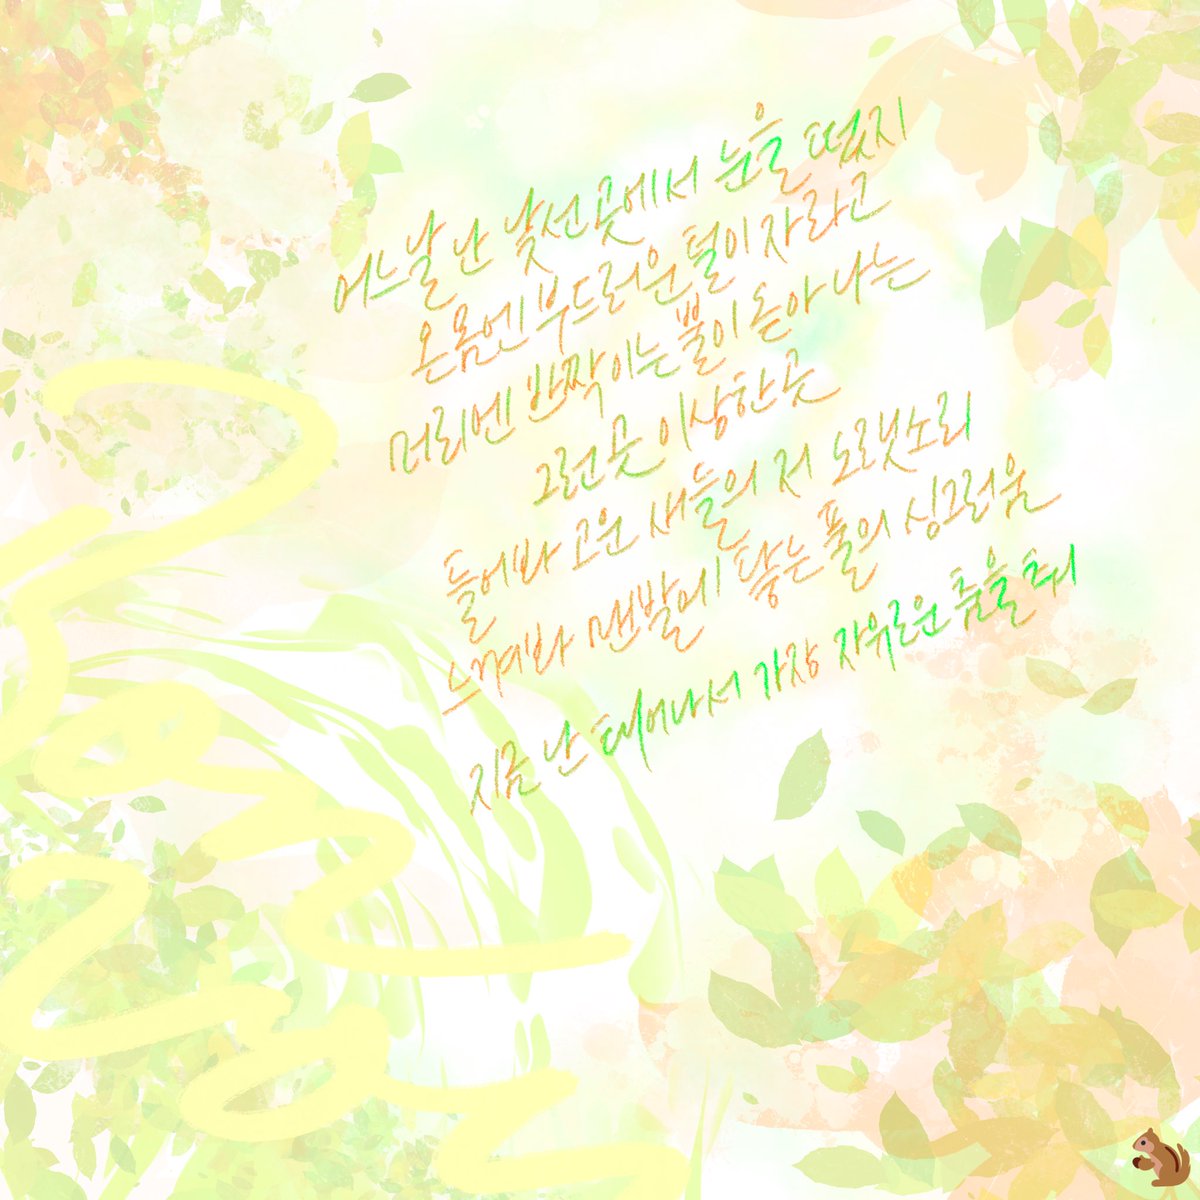 어느 날 난 낯선 곳에서 눈을 떴지
온몸엔 부드러운 털이 자라고
머리엔 반짝이는 뿔이 돋아나는
그런 곳 이상한 곳
들어봐 고운 새들의 저 노랫소리
느껴봐 맨발에 닿는 풀의 싱그러움
지금 난 태어나서 가장 자유로운 춤을 춰